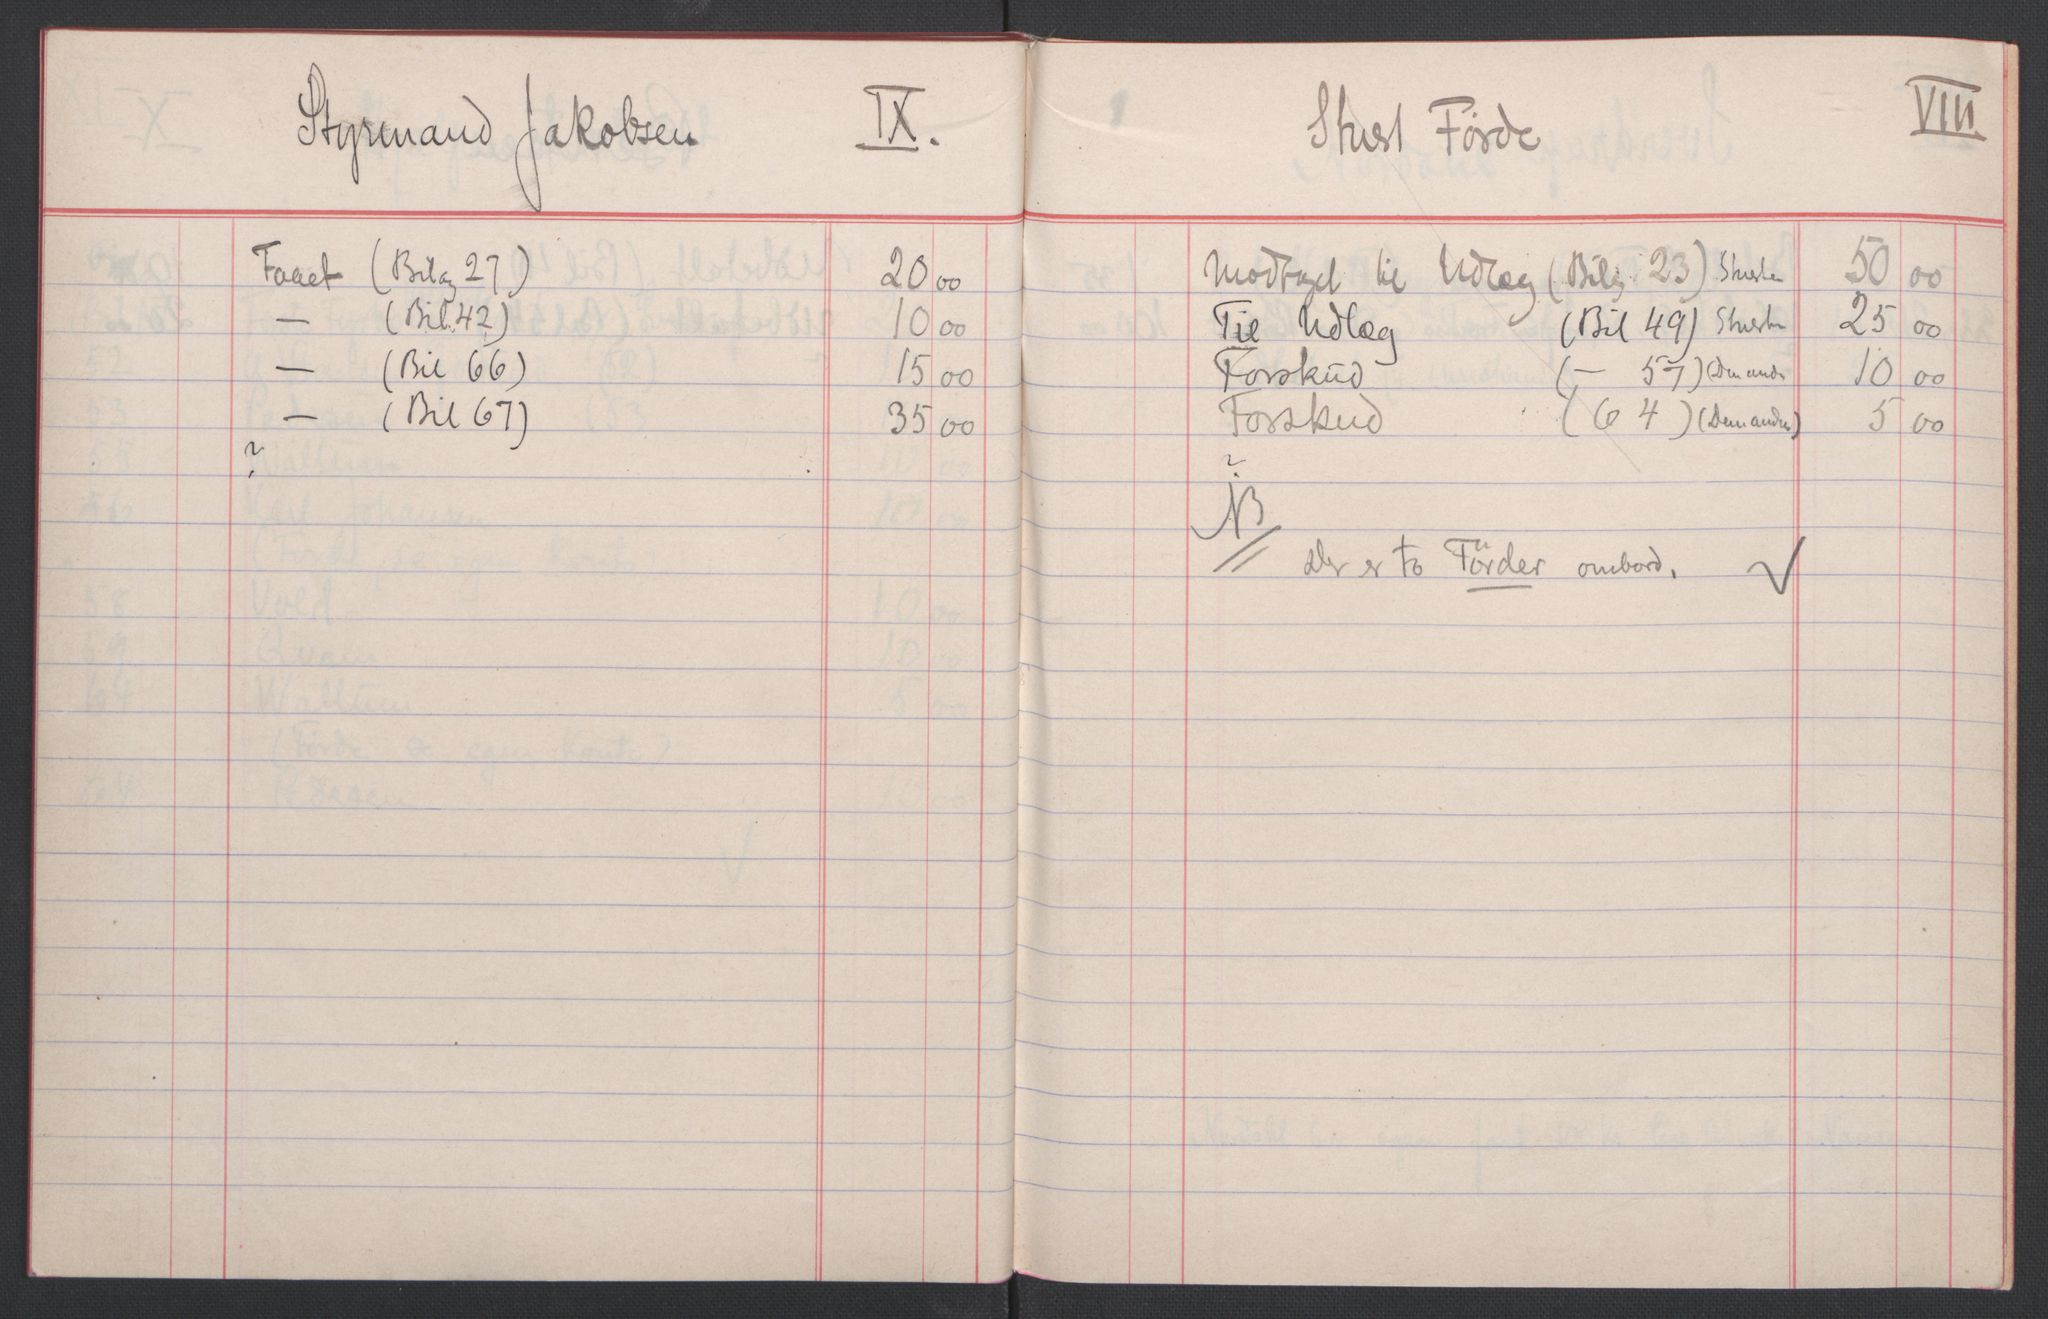 Styrmand Jakobsen IX.
Faaet (Bilag 27) 20 00
— (Bil. 42) 10 00
— (Bil 66) 15 00
— (Bil 67) 35 00
?
Stuert Förde VIII.
Modtaget til Udlæg (Bilg. 23) Stuerten 50 00
Til Udlæg (Bil 49) Stuerten 25 00
Forskud (— 57) (Demandr 10 00
Forskud (64) (Demandr) 5 00
?
NB
Der er to Förder ombord. ✓